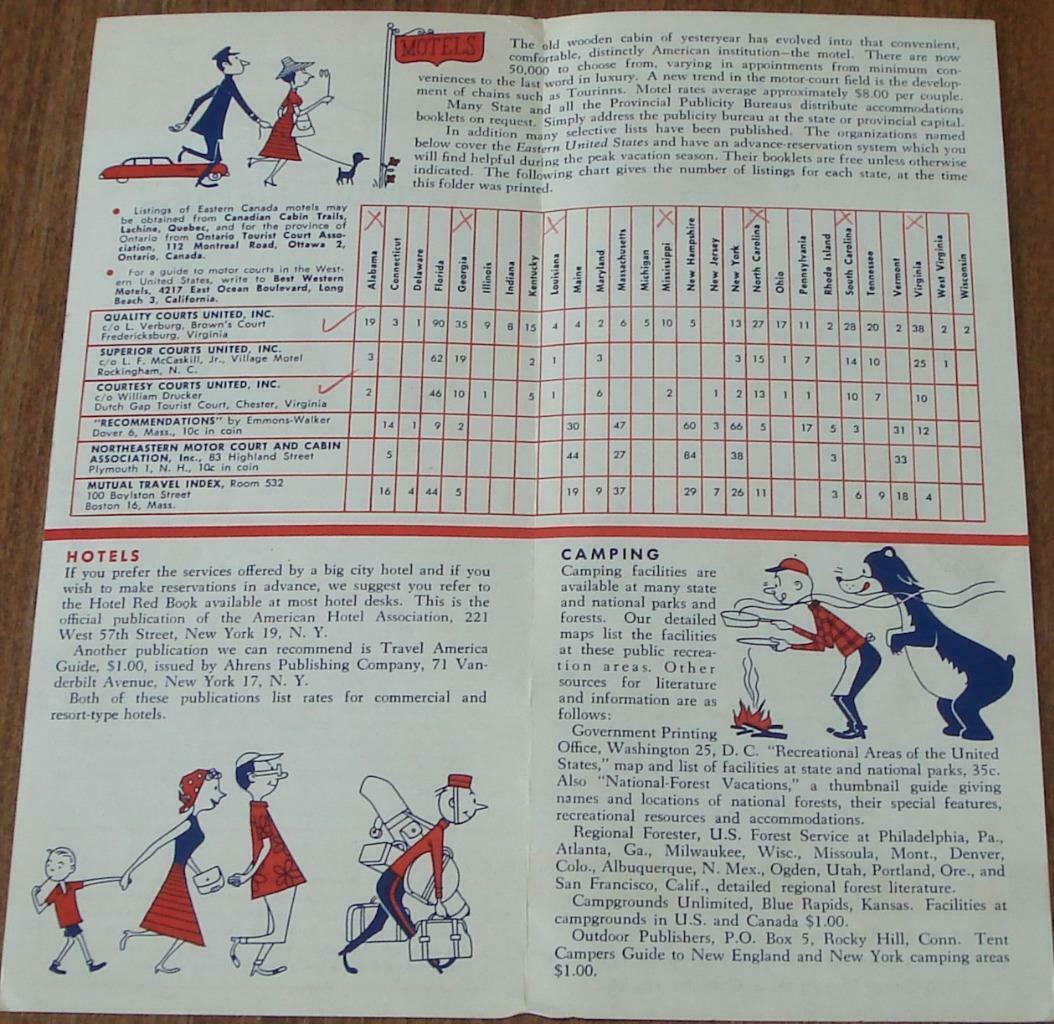 MOTELS
The old wooden cabin of yesteryear has evolved into that convenient,
comfortable, distinctly American institution—the motel. There are now
50,000 to choose from, varying in appointments from minimum con-
veniences to the last word in luxury. A new trend in the motor-court field is the develop-
ment of chains such as Tourinns. Motel rates average approximately $8.00 per couple.
Many State and all the Provincial Publicity Bureaus distribute accommodations
booklets on request. Simply address the publicity bureau at the state or provincial capital.
In addition many selective lists have been published. The organizations named
below cover the Eastern United States and have an advance-reservation system which you
will find helpful during the peak vacation season. Their booklets are free unless otherwise
indicated. The following chart gives the number of listings for each state, at the time
this folder was printed.
• Listings of Eastern Canada motels may
be obtained from Canadian Cabin Trails,
Lachine, Quebec, and for the province of
Ontario from Ontario Tourist Court Asso-
ciation, 112 Montreal Road, Ottawa 2,
Ontario, Canada.
• For a guide to motor courts in the West-
ern United States, write to Best Western
Motels, 4217 East Ocean Boulevard, Long
Beach 3, California.
Alabama Connecticut Delaware Florida Georgia Illinois Indiana Kentucky Louisiana Maine Maryland Massachusetts Michigan Mississippi New Hampshire New Jersey New York North Carolina Ohio Pennsylvania Rhode Island South Carolina Tennessee Vermont Virginia West Virginia Wisconsin
QUALITY COURTS UNITED, INC.
c/o L. Verburg, Brown's Court
Fredericksburg, Virginia
19 3 1 90 35 9 8 15 4 4 2 6 5 10 5 13 27 17 11 2 28 20 2 38 2 2
SUPERIOR COURTS UNITED, INC.
c/o L. F. McCaskill, Jr., Village Motel
Rockingham, N. C.
3 62 19 2 1 3 3 15 1 7 14 10 25 1
COURTESY COURTS UNITED, INC.
c/o William Drucker
Dutch Gap Tourist Court, Chester, Virginia
2 46 10 1 5 1 6 2 1 2 13 1 1 10 7 10
"RECOMMENDATIONS" by Emmons-Walker
Dover 6, Mass., 10c in coin
14 1 9 2 30 47 60 3 66 5 17 5 3 31 12
NORTHEASTERN MOTOR COURT AND CABIN
ASSOCIATION, Inc., 83 Highland Street
Plymouth 1, N. H., 10c in coin
5 44 27 84 38 3 33
MUTUAL TRAVEL INDEX, Room 532
100 Boylston Street
Boston 16, Mass.
16 4 44 5 19 9 37 29 7 26 11 3 6 9 18 4
HOTELS
If you prefer the services offered by a big city hotel and if you
wish to make reservations in advance, we suggest you refer to
the Hotel Red Book available at most hotel desks. This is the
official publication of the American Hotel Association, 221
West 57th Street, New York 19, N. Y.
Another publication we can recommend is Travel America
Guide, $1.00, issued by Ahrens Publishing Company, 71 Van-
derbilt Avenue, New York 17, N. Y.
Both of these publications list rates for commercial and
resort-type hotels.
CAMPING
Camping facilities are
available at many state
and national parks and
forests. Our detailed
maps list the facilities
at these public recrea-
tion areas. Other
sources for literature
and information are as
follows:
Government Printing
Office, Washington 25, D. C. "Recreational Areas of the United
States," map and list of facilities at state and national parks, 35c.
Also "National-Forest Vacations," a thumbnail guide giving
names and locations of national forests, their special features,
recreational resources and accommodations.
Regional Forester, U.S. Forest Service at Philadelphia, Pa.,
Atlanta, Ga., Milwaukee, Wisc., Missoula, Mont., Denver,
Colo., Albuquerque, N. Mex., Ogden, Utah, Portland, Ore., and
San Francisco, Calif., detailed regional forest literature.
Campgrounds Unlimited, Blue Rapids, Kansas. Facilities at
campgrounds in U.S. and Canada $1.00.
Outdoor Publishers, P.O. Box 5, Rocky Hill, Conn. Tent
Campers Guide to New England and New York camping areas
$1.00.